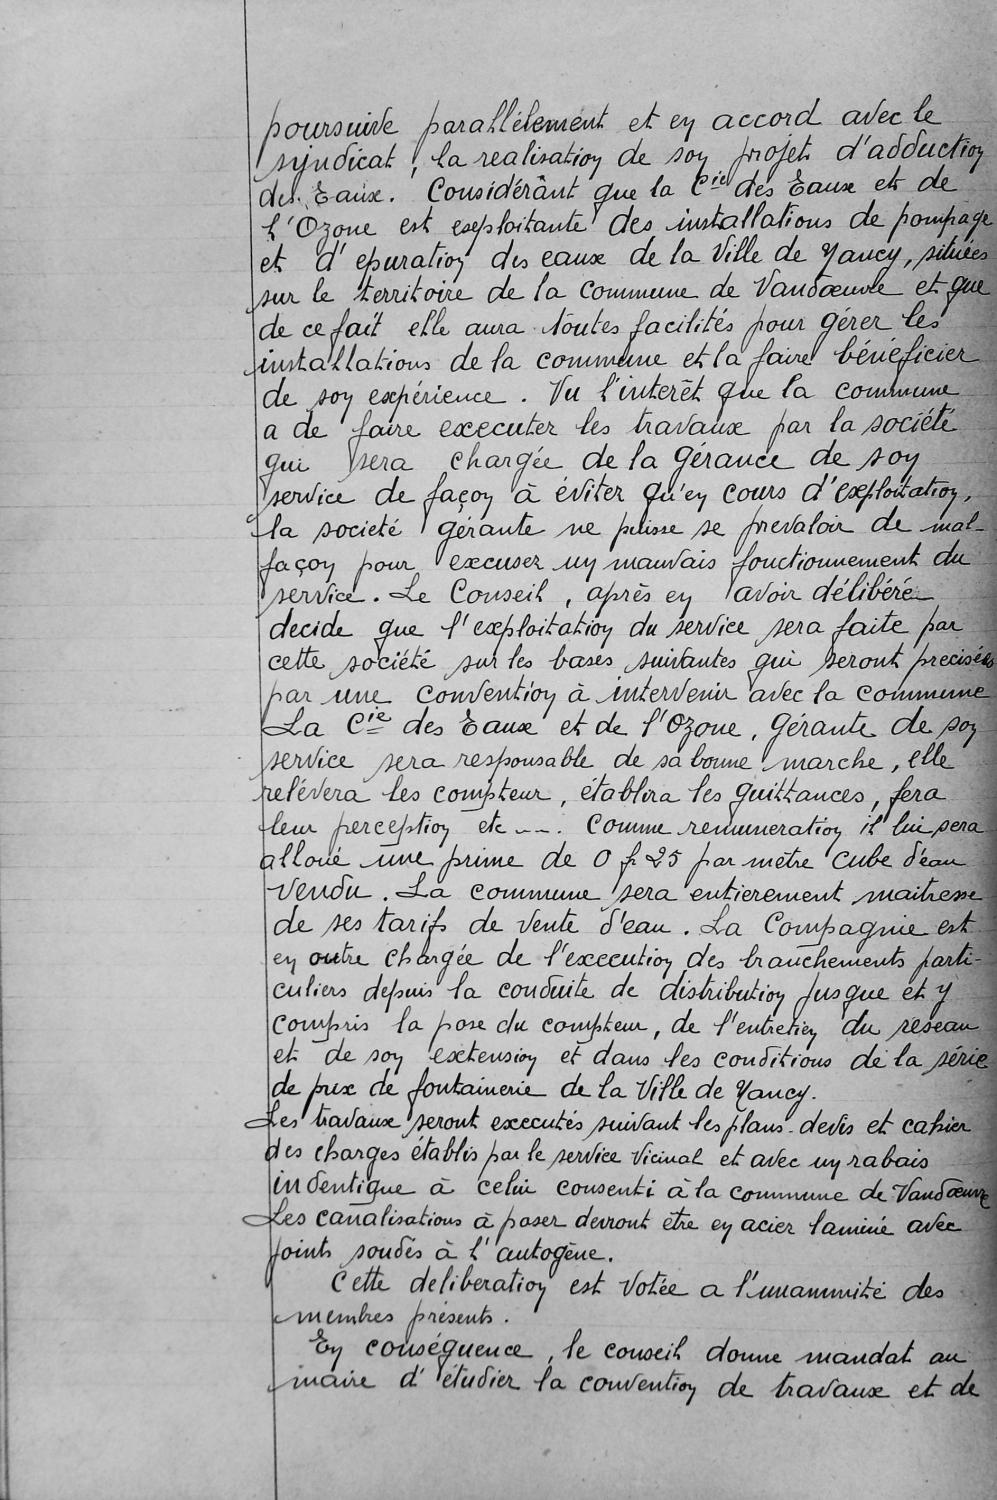 poursuive parallèlement et en accord avec le
syndicat, la realisation de son projet d'adduction
des Eaux. Considérant que la Cie des Eaux et de
l'Ozone est exploitante des installations de pompage
et d'epuration des eaux de la Ville de Nancy, situées
sur le territoire de la commune de Vandœuvre et que
de ce fait elle aura toutes facilités pour gérer les
installations de la commune et la faire bénéficier
de son expérience. Vu l'interêt que la commune
a de faire executer les travaux par la société
qui sera chargée de la gérance de son
service de façon à éviter qu'en cours d'exploitation,
la societé gérante ne puisse se prevaloir de mal-
façon pour excuser un mauvais fonctionnement du
service. Le Conseil, après en avoir délibéré
decide que l'exploitation du service sera faite par
cette société sur les bases suivantes qui seront precisées
par une convention à intervenir avec la commune
La Cie des Eaux et de l'Ozone, gérante de son
service sera responsable de sa bonne marche, elle
relévera les compteur, établira les quittances, fera
leur perception etc ---. Comme remuneration il lui sera
alloué une prime de 0 fr 25 par mètre cube d'eau
vendu. La commune sera entierement maitresse
de ses tarifs de vente d'eau. La Compagnie est
en outre chargée de l'execution des branchements parti-
culiers depuis la conduite de distribution jusque et y
compris la pose du compteur, de l'entretien du réseau
et de son extension et dans les conditions de la série
de prix de fontainerie de la Ville de Nancy.
Les travaux seront executés suivant les plans - devis et cahier
des charges établis par le service vicinal et avec un rabais
indentique à celui consenti à la commune de Vandœuvre
Les canalisations à poser devront être en acier laminé avec
joints soudés à l'autogène.
Cette deliberation est votée a l'unanimité des
membres présents.
En conséquence, le conseil donne mandat au
maire d'étudier la convention de travaux et de